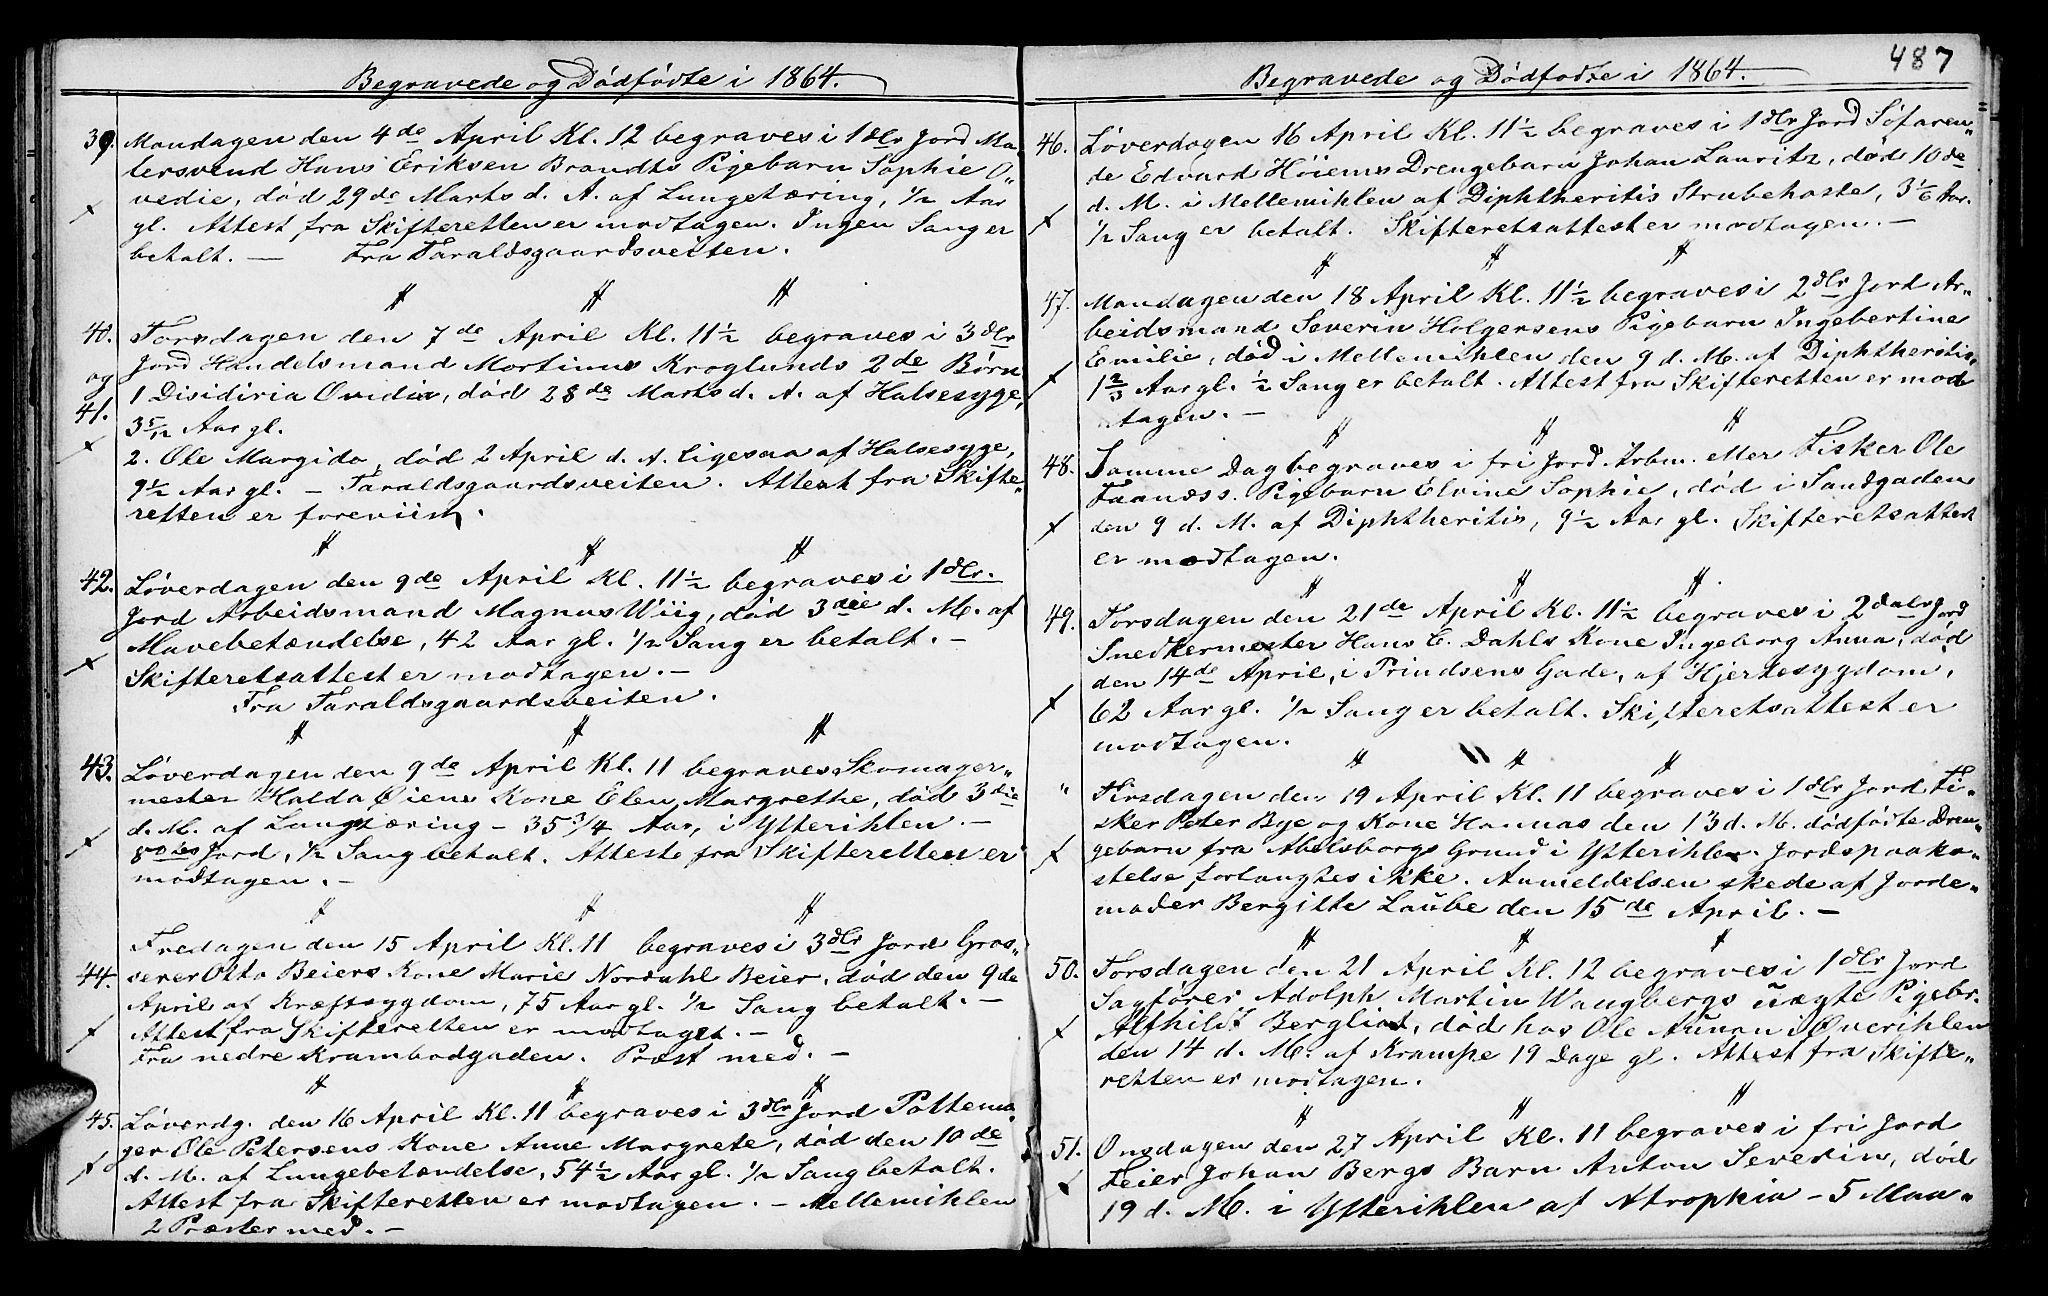 Begravede og Dødfødte i 1864.
39. Mandagen den 4de April Kl. 12 begraves i 1 dlr Jord Ma-
lersvend Hans Eriksen Brandts Pigebarn Sophie O"
vedie, død 29de Marts d. A. af Lungetæring, 1/2 Aar
gl. Attest fra Skifteretten er modtagen. Ingen Sang er
betalt. — Fra Taraldsgaardsveiten.
40. Torsdagen den 7de April Kl. 11 1/2 begraves i 3 dlr
og Jord Handelsmand Mortinus Kroglunds 2de Børn
41. 1 Disidiria Ovidia, død 28de Marts d. A. af Halsesyge,
3 5/12 Aar gl.
2. Ole Margido, død 2 April d. A. ligesaa af Halsesyge,
9 1/2 Aar gl. – Taraldsgaardsveiten. Attest fra Skifte"
retten er foreviist.
42. Løverdagen den 9de April Kl. 11 1/2 begraves i 1 dlr.
Jord Arbeidsmand Magnus Wiig, død 3die d. M. af
Mavebetændelse, 42 Aar gl. 1/2 Sang er betalt. –
Skifteretsattest er modtagen. –
Fra Taraldsgaardsveiten.
43. Løverdagen den 9de April Kl. 11 begraves Skomager"
mester Halda Øiens Kone Elen Margrethe, død 3die
d. M. af Lungetæring – 35 3/4 Aar, i Ytterihlen. –
Jord, 1/2 Sang betalt. Attest fra Skifteretten er
modtagen. –
Fredagen den 15 April Kl. 11 begraves i 3 dlr Jord Gros"
44. serer Otto Beiers Kone Marie Nordahl Beier, død den 9de
April af Kræftsygdom, 75 Aar gl. 1/2 Sang betalt. –
Attest fra Skifteretten er modtaget. –
Fra nedre Krambodgaden. Præst med. –
45. Løverdg. den 16 April Kl. 11 begraves i 3 dlr Jord Pottema"
ger Ole Petersens Kone Anne Margrete, død den 10de
d. M. af Lungebetændelse, 54 1/2 Aar gl. 1/2 Sang betalt.
Attest fra Skifteretten er modtagen. – Mellemihlen
2 Præster med. –
487
Begravede og Dødfødte i 1864.
46. Løverdagen 16 April Kl. 11 1/2 begraves i 1 dlr Jord Søfaren"
de Edvard Höiems Drengebarn Johan Lauritz, død 10de
d. M. i Mellemihlen af Diphtheritis Strubehoste, 3 1/6 Aar.
1/2 Sang er betalt. Skifteretsattest er modtagen. –
47. Mandagen den 18 April Kl. 11 1/2 begraves i 2 dlr Jord Ar-
beidsmand Severin Holgersens Pigebarn Ingebertine
Emilie, død i Mellemihlen den 9 d. M. af Diphtheritis,
1 2/3 Aar gl. 1/2 Sang er betalt. Attest fra Skifteretten er mod
tagen. –
48. Samme Dag begraves i fri Jord Arbm. eller Fisker Ole
Faanæss. Pigebarn Elvine Sophie, død i Sandgaden
den 9 d. M. af Diphtheritis, 9 1/2 Aar gl. Skifteretsattest
er modtagen.
49. Torsdagen den 21de April Kl. 11 1/2 begraves i 2 dalr Jord
Snedkermester Hans C. Dahls Kone Ingeborg Anna, død
den 14de April, i Prindsens Gade, af Hjertesygdom,
62 Aar gl. 1/2 Sang er betalt. Skifteretsattest er
modtagen.
" Tirsdagen den 19 April Kl. 11 begraves i 1 dlr Jord Fi-
sker Peter Bye og Kone Hannas den 13 d. M. dødfødte Dren"
gebarn fra Abelsborgs Grund i Ytterihlen. Jordspaaka-
stelse forlangtes ikke. Anmeldelsen skede af Jorde"
moder Bergitte Laübe den 15de April. –
50. Torsdagen den 21 April Kl. 12 begraves i 1 dlr Jord
Sagfører Adolph Martin Wangbergs üægte Pigebr.
Alfhildt Bergliot, død hos Ole Aünan i Øverihlen
den 14 d. M. af Krampe 19 Dage gl. Attest fra Skifte"
retten er modtagen.
51. Onsdagen den 27 April Kl. 11 begraves i fri Jord
Feier Johan Bergs Barn Anton Severin, død
19 d. M. i Ytterihlen af Atrophia – 5 Maa"